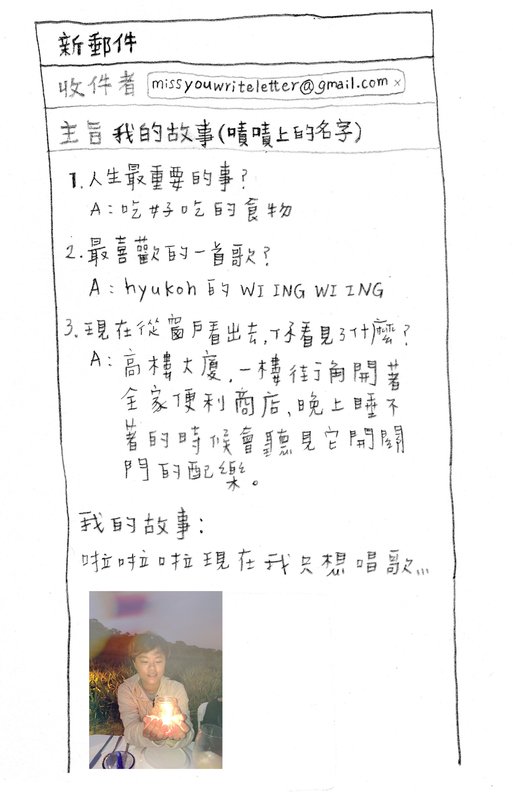 新郵件
收件者 missyouwriteletter@gmail.com ×
主旨 我的故事(嘖嘖上的名字)
1.人生最重要的事?
A:吃好吃的食物
2.最喜歡的一首歌?
A:hyukoh 的 WI ING WI ING
3.現在從窗戶看出去,你看見了什麼?
A:高樓大廈,一樓街角開著
全家便利商店、晚上睡不
著的時候會聽見它開關
門的配樂。
我的故事:
啦啦啦現在我只想唱歌...